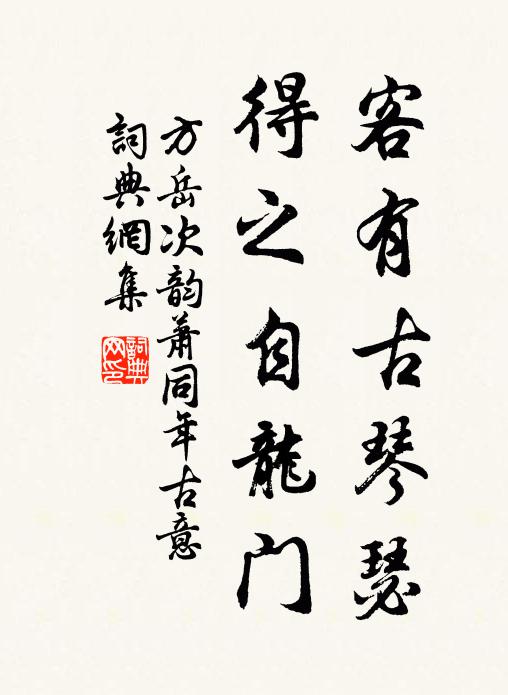 客有古琴瑟
得之自龍门
方岳次韵萧同年古意
詞典網集
詞典网印